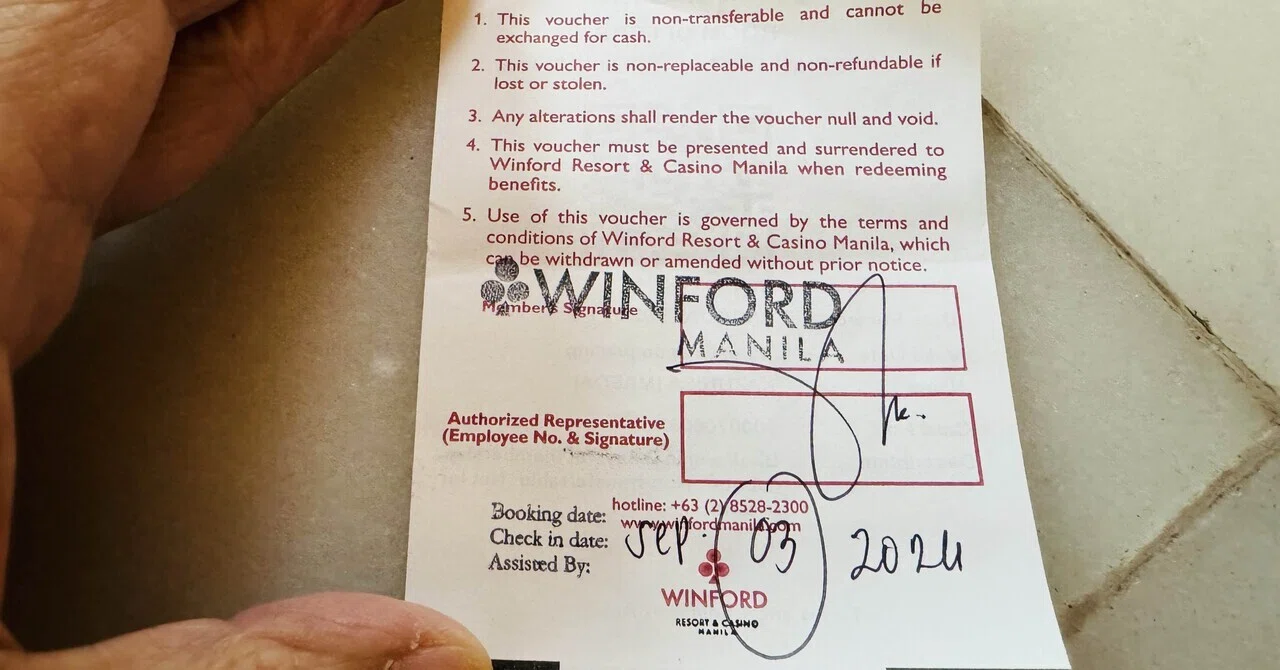 1. This voucher is non-transferable and cannot be
exchanged for cash.
2. This voucher is non-replaceable and non-refundable if
lost or stolen.
3. Any alterations shall render the voucher null and void.
4. This voucher must be presented and surrendered to
Winford Resort & Casino Manila when redeeming
benefits.
5. Use of this voucher is governed by the terms and
conditions of Winford Resort & Casino Manila, which
can be withdrawn or amended without prior notice.
WINFORD
MANILA
Member's Signature
Authorized Representative
(Employee No. & Signature)
hotline: +63 (2) 8528-2300
www.winfordmanila.com
Booking date:
Check in date: Sep. 03 2024
Assisted By:
WINFORD
RESORT & CASINO
MANILA